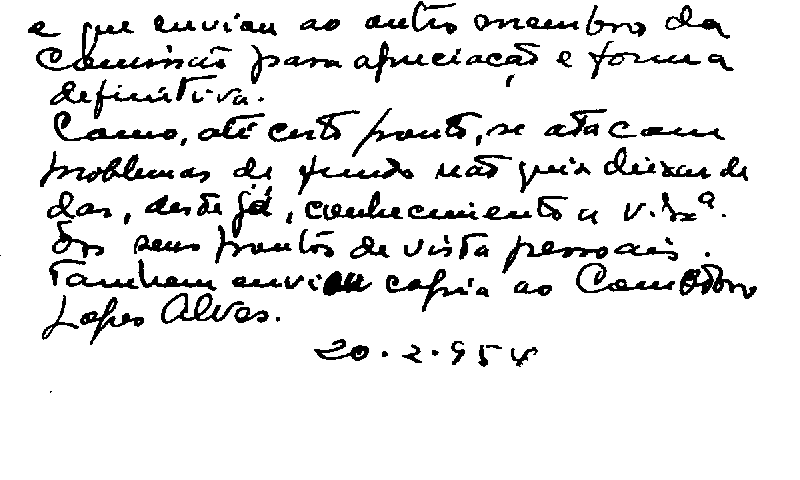 e que enviou ao outro membro da
Comissão para apreciação e forma
definitiva.
Como, até certo ponto, se atacam
problemas de fundo não quis deixar de
dar, desde já, conhecimento a V. Exª.
dos seus pontos de vista pessoais.
Tambem enviou copia ao Comodoro
Lopes Alves.
20.2.954